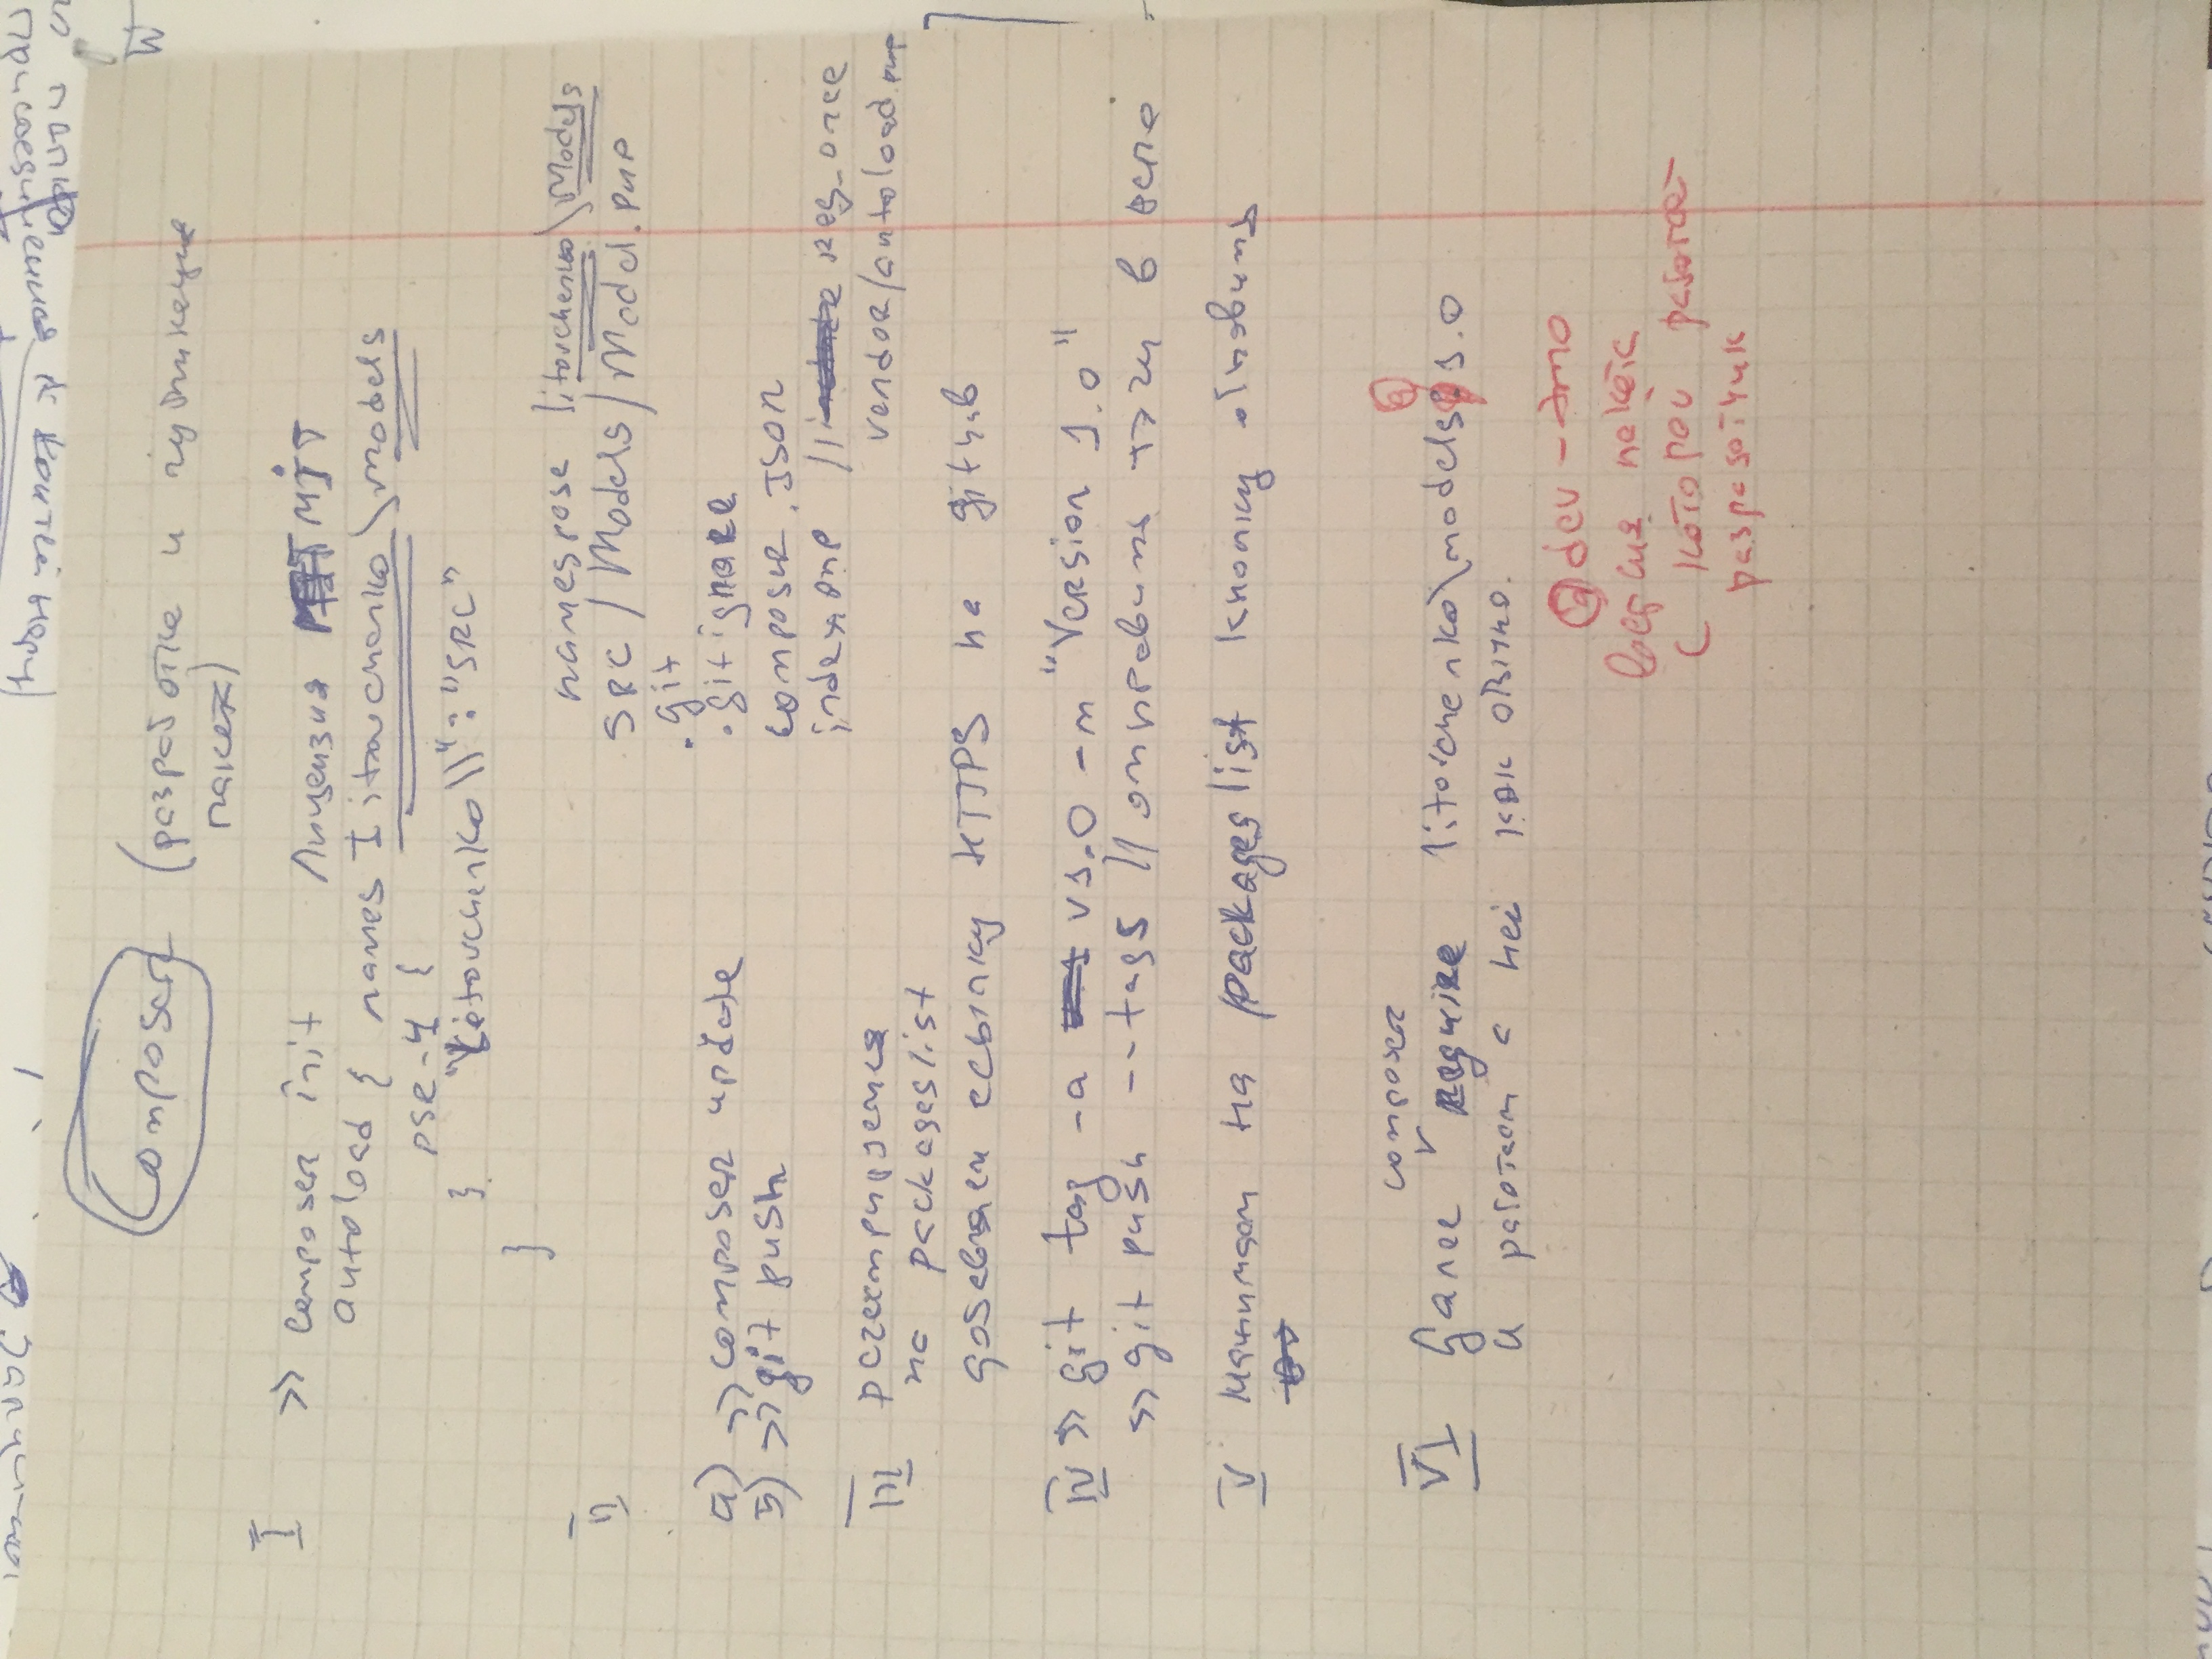 Composer (разработка и публикация
пакета)
I >> composer init Лицензия MIT
autoload { names litovchenko\models
psr-4 {
} "litovchenko\\" : "SRC"
}
II
namespase litovchenko\Models
SRC / Models / Model.php
.git
а) >> composer update .gitignore
б) >> git push composer.JSON
index.php // req_once
vendor/autoload.php
III регистрируемся
на packageslist
добавляем ссылку HTTPS на github
IV >> git tag -a v1.0 -m "Version 1.0"
>> git push --tags // отправить тэги в репо
V Нажимаем на packageslist кнопку обновить
composer
VI Далее require litovchenko\models:1.0
и работаем с ней как обычно.
@
@dev - это
версия пакета
с которой работает
разработчик